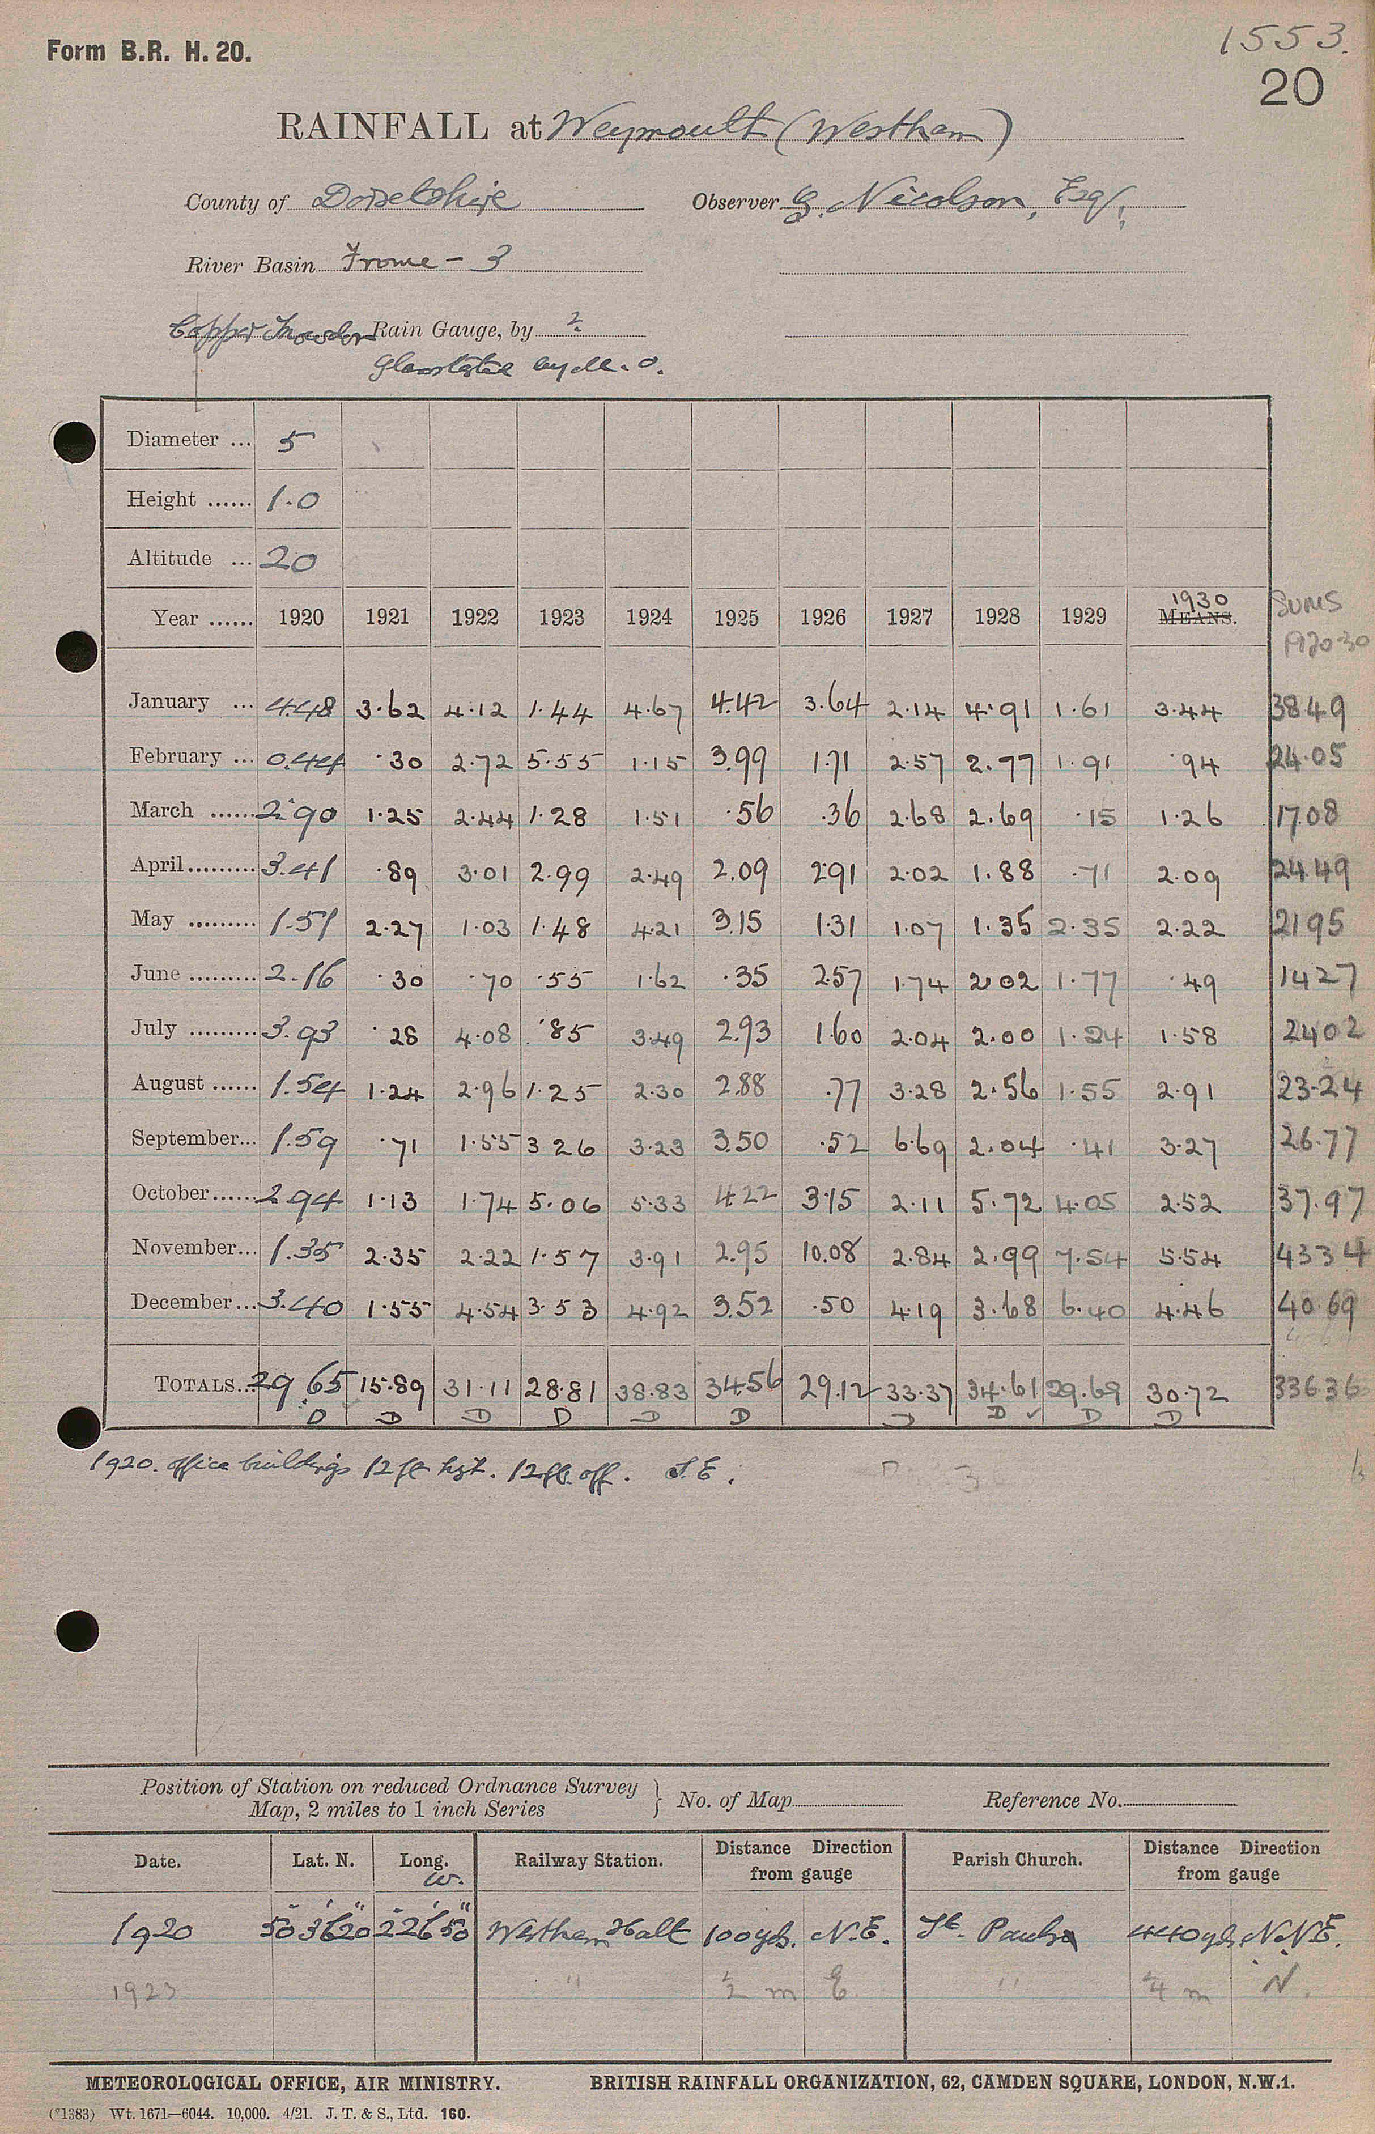 Form B.R. H. 20.
1553.
20
RAINFALL at Weymouth (Westham)
County of Dorsetshire Observer G. Nicolson, Esq.
River Basin Frome - 3
Copper Snowdon Rain Gauge, by ?
Glass tested by M.O.
Diameter ... 5
Height ...... 1.0
Altitude ... 20
1930 Sums
Year ...... 1920 1921 1922 1923 1924 1925 1926 1927 1928 1929 MEANS. 1920-30
January ... 4.48 3.62 4.12 1.44 4.67 4.42 3.64 2.14 4.91 1.61 3.44 38.49
February ... 0.44 .30 2.72 5.55 1.15 3.99 1.71 2.57 2.77 1.91 .94 24.05
March ...... 2.90 1.25 2.44 1.28 1.51 .56 .36 2.68 2.69 .15 1.26 17.08
April ......... 3.41 .89 3.01 2.99 2.49 2.09 2.91 2.02 1.88 .71 2.09 24.49
May ......... 1.51 2.27 1.03 1.48 4.21 3.15 1.31 1.07 1.35 2.35 2.22 21.95
June ......... 2.16 .30 .70 .55 1.62 .35 2.57 1.74 2.02 1.77 .49 14.27
July ......... 3.93 .28 4.08 .85 3.49 2.93 1.60 2.04 2.00 1.24 1.58 24.02
August ...... 1.54 1.24 2.96 1.25 2.30 2.88 .77 3.28 2.56 1.55 2.91 23.24
September... 1.59 .71 1.55 3.26 3.23 3.50 .52 6.69 2.04 .41 3.27 26.77
October...... 2.94 1.13 1.74 5.06 5.33 4.22 3.15 2.11 5.72 4.05 2.52 37.97
November... 1.35 2.35 2.22 1.57 3.91 2.95 10.08 2.84 2.99 7.54 5.54 43.34
December... 3.40 1.55 4.54 3.53 4.92 3.52 .50 4.19 3.68 6.40 4.46 40.69
TOTALS... 29.65 15.89 31.11 28.81 38.83 34.56 29.12 33.37 34.61 29.69 30.72 336.36
D D D D D D D D D D
1920. office buildings 12 ft hgt. 12 ft. off. S.E.
Position of Station on reduced Ordnance Survey
Map, 2 miles to 1 inch Series } No. of Map Reference No.
Date. Lat. N. Long. W. Railway Station. Distance Direction from gauge Parish Church. Distance Direction from gauge
1920 50° 36' 20" 2° 26' 50" Westham Halt 100 yds. N.E. St. Pauls 440 yds. N.N.E.
1923 " ½ m E " ¼ m N.
METEOROLOGICAL OFFICE, AIR MINISTRY. BRITISH RAINFALL ORGANIZATION, 62, CAMDEN SQUARE, LONDON, N.W.1.
(*1383) Wt. 1671—6044. 10,000. 4/21. J. T. & S., Ltd. 160.